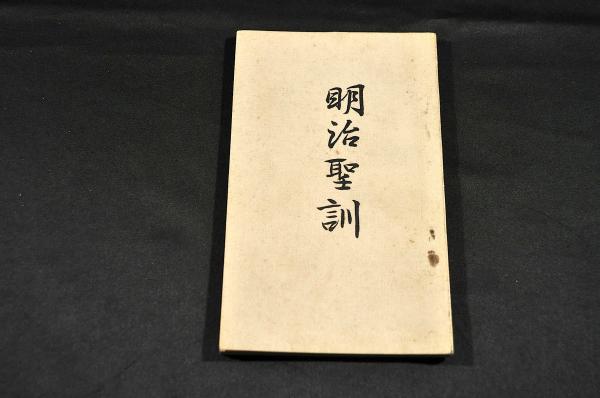 明治聖訓